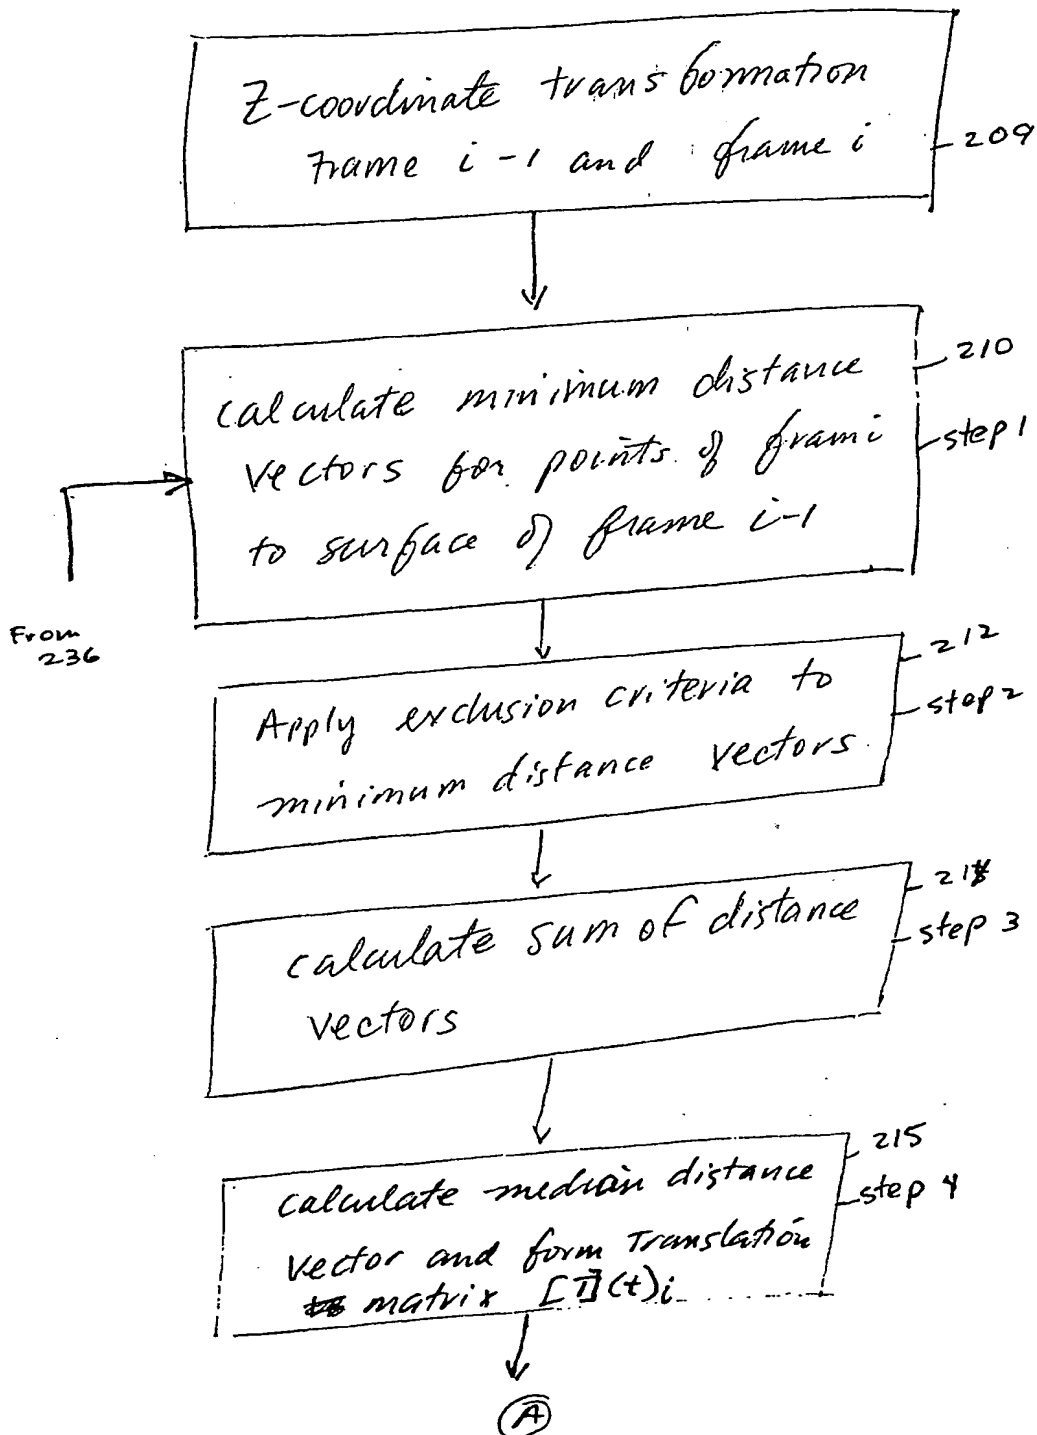 Z-coordinate transformation
frame i-1 and frame i
209
calculate minimum distance
vectors for points of frami
to surface of frame i-1
210
step 1
From
236
Apply exclusion criteria to
minimum distance vectors
212
step 2
calculate sum of distance
vectors
step 3
calculate median distance
vector and form Translation
matrix [T](t)i
215
step 4
A